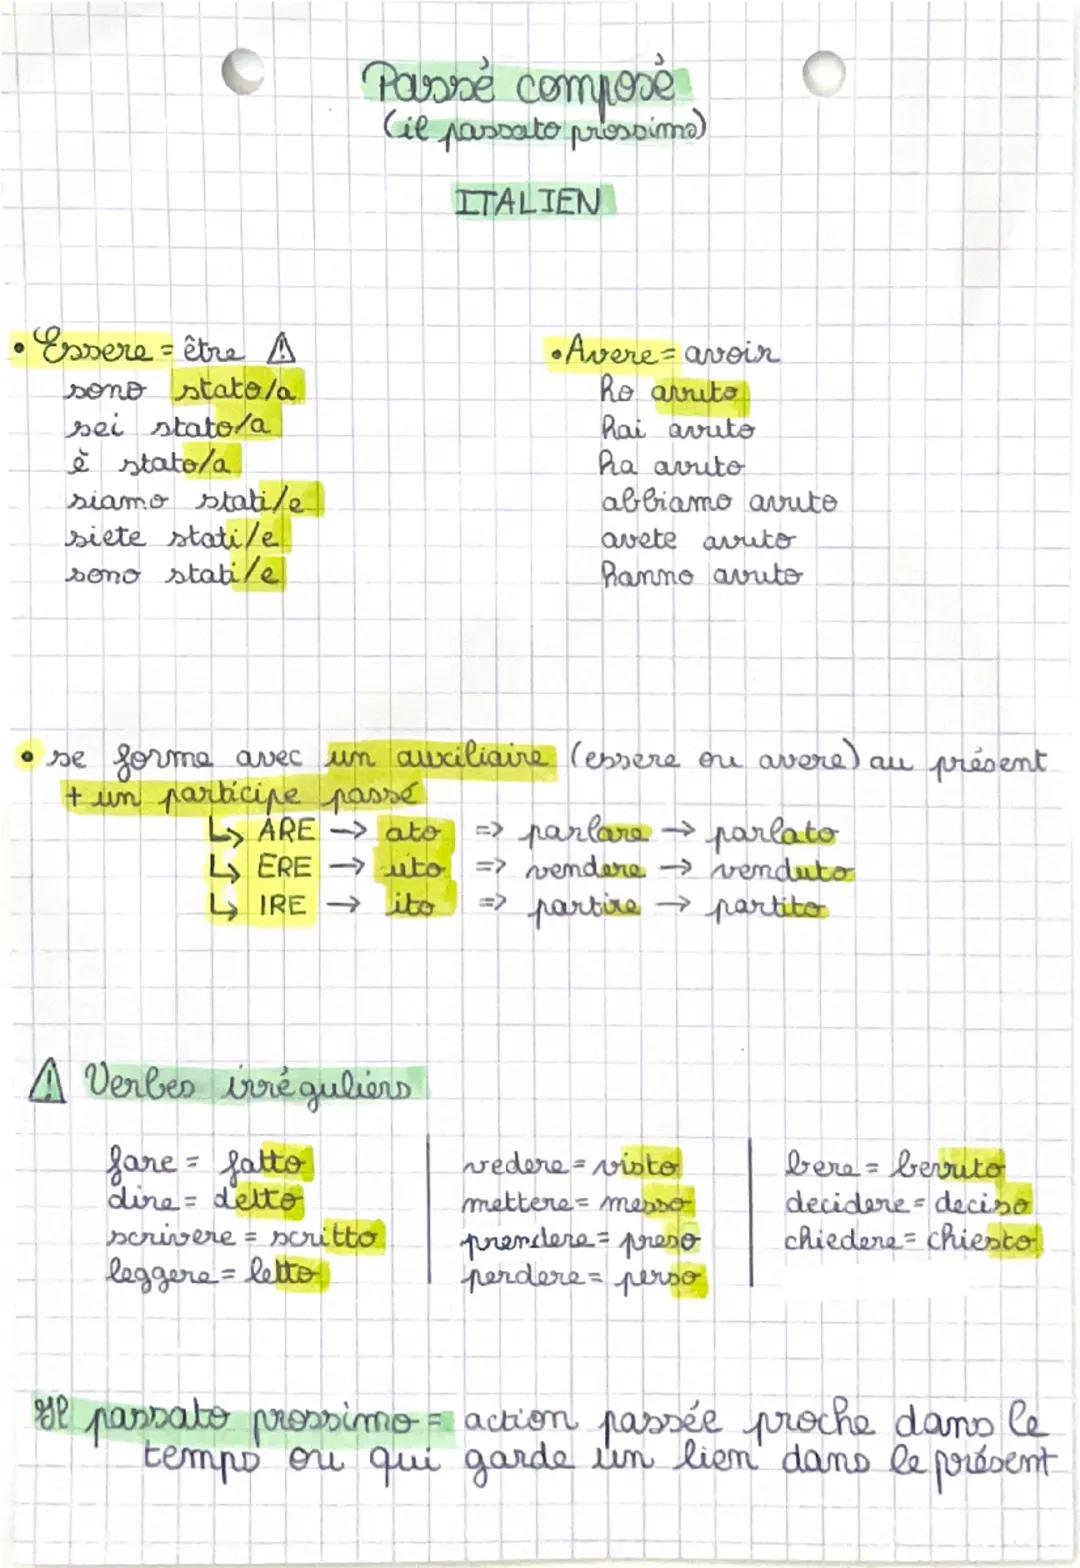 Passé composé
(il passato prossimo)
ITALIEN
• Essere = être ⚠
sono stato/a
sei stato/a
è stato/a
siamo stati/e
siete stati/e
sono stati/e
• Avere = avoir
ho avuto
hai avuto
ha avuto
abbiamo avuto
avete avuto
hanno avuto
• se forme avec un auxiliaire (essere ou avere) au présent
+ un participe passé
↳ ARE → ato => parlare → parlato
↳ ERE → uto => vendere → venduto
↳ IRE → ito => partire → partito
⚠ Verbes irréguliers
fare = fatto
dire = detto
scrivere = scritto
leggere = letto
vedere = visto
mettere = messo
prendere = preso
perdere = perso
bere = bevuto
decidere = deciso
chiedere = chiesto
Il passato prossimo = action passée proche dans le
temps ou qui garde un lien dans le présent